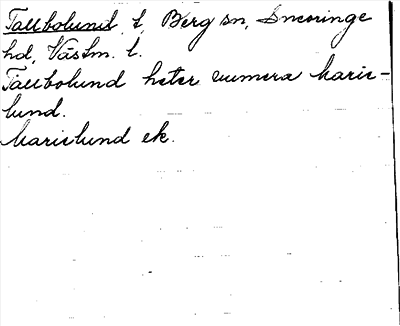 Tallbolund, t, Berg sn, Snevringe
hd, Västm. l.
Tallbolund heter numera Marie-
lund.
Marielund ek.